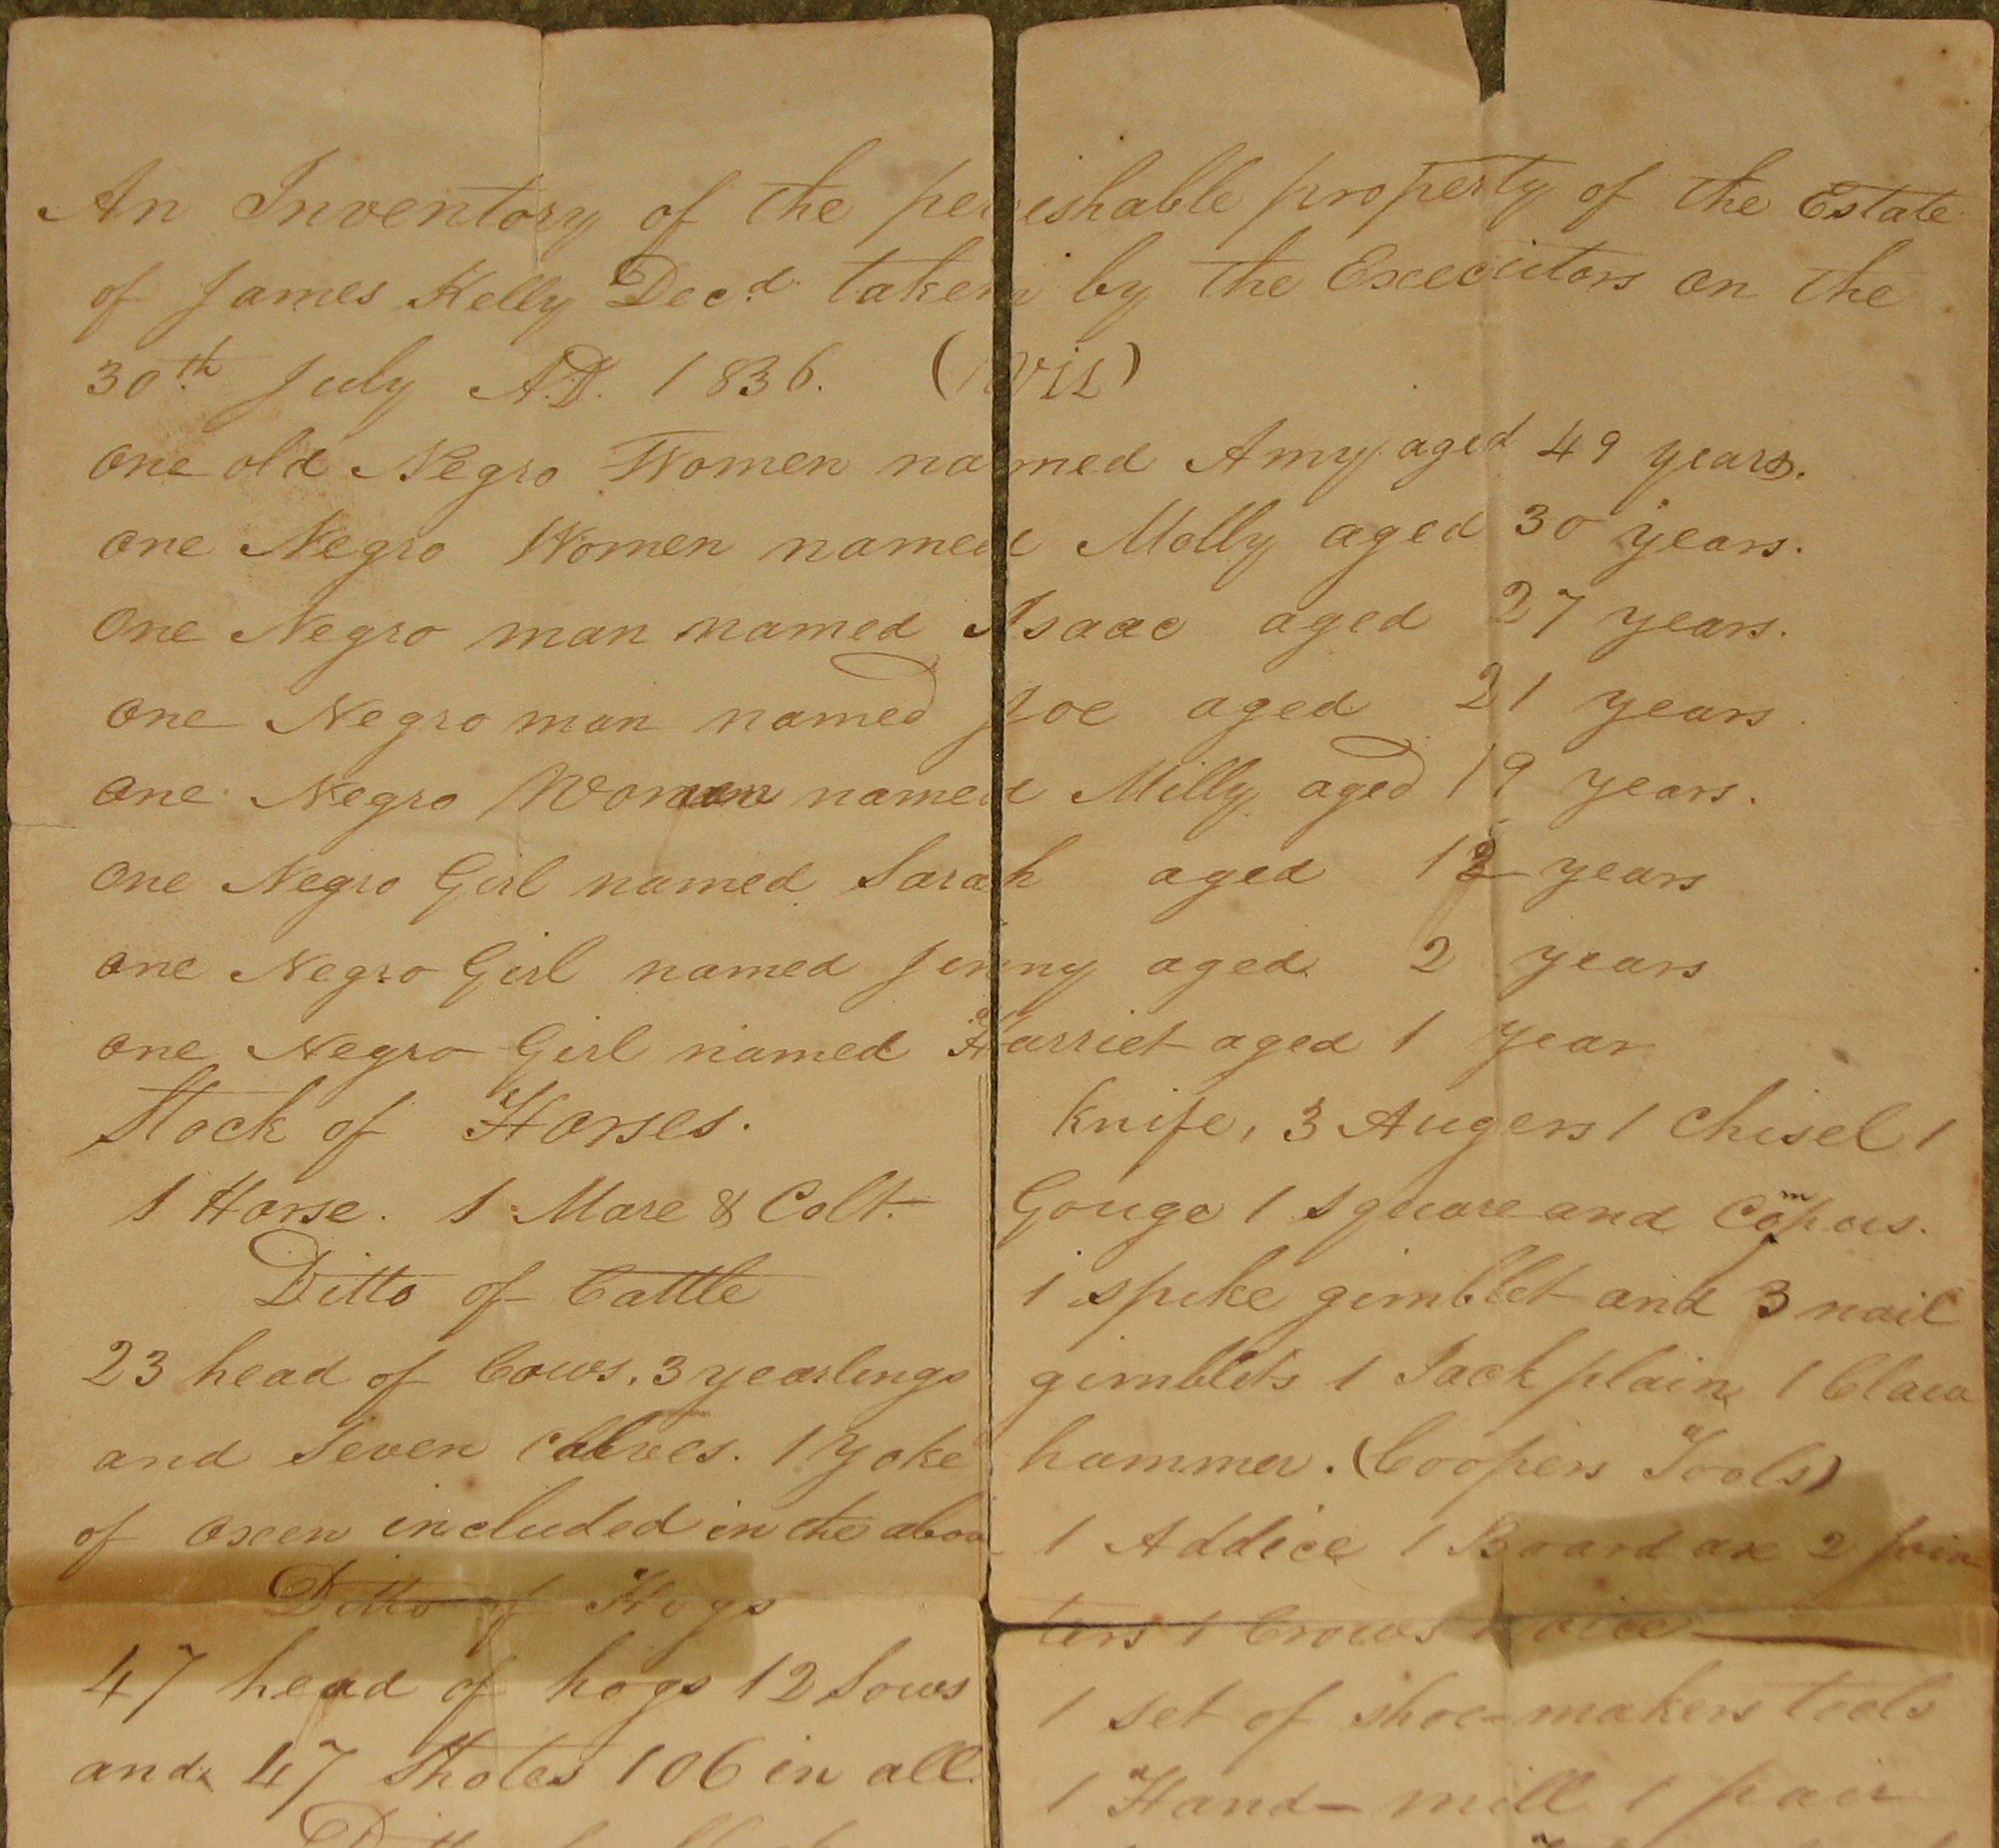 An Inventory of the perishable property of the Estate
of James Kelly Decd. taken by the Executors on the
30th July A.D. 1836. (Viz)
one old Negro Women named Amy aged 49 years.
one Negro Women named Molly aged 30 years.
one Negro man named Isaac aged 27 years.
one Negro man named Joe aged 21 years.
one Negro Women named Milly aged 19 years.
one Negro Girl named Sarah aged 12 years
one Negro Girl named Jinny aged 2 years
one Negro Girl named Harriet aged 1 year
Stock of Horses.
1 Horse. 1 Mare & Colt.
Ditto of Cattle
23 head of Cows, 3 yearlings
and Seven Calves. 1 Yoke
of oxen included in the above
Ditto of Hogs
47 head of hogs 12 Sows
and 47 Shotes 106 in all.
knife, 3 Augers 1 Chisel 1
Gouge 1 Square and Compus.
1 spike gimblet and 3 nail
gimblets 1 Jack plain 1 Claw
hammer. (Coopers Tools)
1 Addice 1 Board ax 2 join
ters 1 Crows
1 Set of shoe-makers tools
1 Hand-mill 1 pair